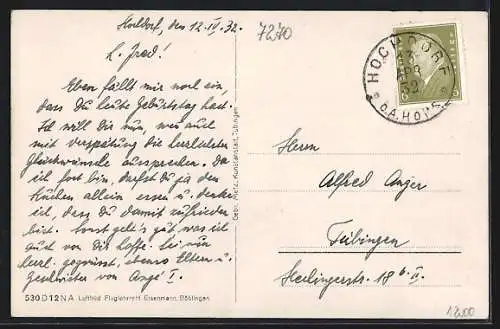 Hochdorf, den 12.IV.32.
7270
L. Fred!
Eben fällt mir noch ein,
dass Du heute Geburtstag hast.
Ich will Dir nun, wenn auch
mit Verspätung die herzlichsten
Glückwünsche aussprechen. Da
ich fort bin, darfst Du ja den
Kuchen allein essen u. denke
ich, dass Du damit zufrieden
bist. Sonst geht's gut, was ich
auch von Dir hoffe. Sei nun
herzl. gegrüsst, ebenso Eltern u.
Geschwister von
530D12NA Luftbild Flugbetrieb Eisenmann, Böblingen
Gebr. Metz, Kunstanstalt, Tübingen
HOCHDORF
APR
32
O.A. HORB
Herrn
Alfred Anger
Tübingen
18 b. II.